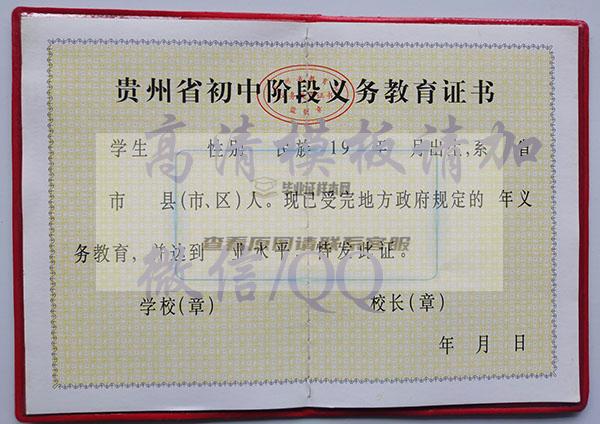 贵州省初中阶段义务教育证书
学生 性别 民族 19 年 月出生,系 省
市 县(市、区)人。现已受完地方政府规定的 年义
务教育,并达到 业水平 特发此证。
学校(章) 校长(章)
年 月 日
高清模板请加
微信/QQ
毕业证样本网
查看原图请联系客服